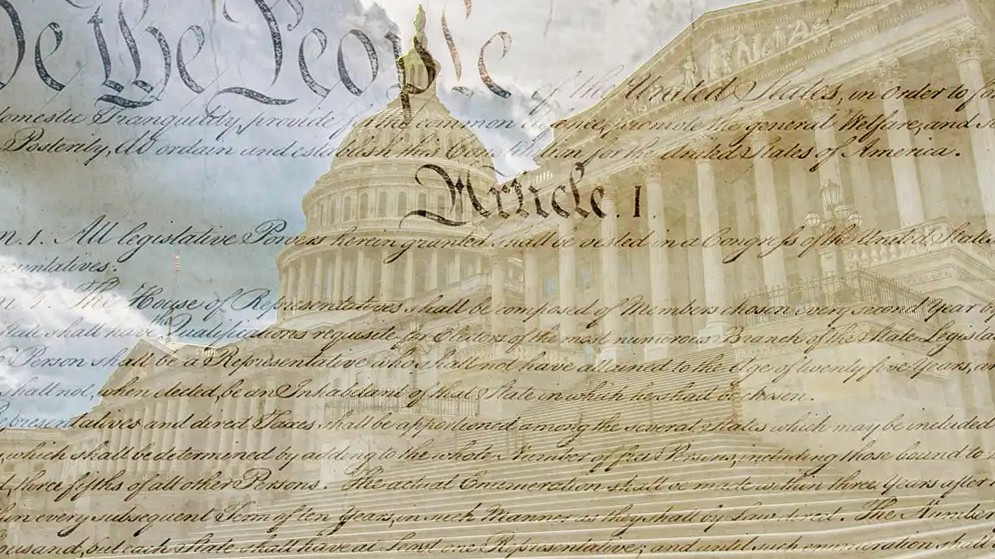 We the People
of the United States, in Order to fo
Domestic Tranquility, provide for the common defence, promote the general Welfare, and
Posterity, do ordain and establish this Constitution for the United States of America.
Article. I.
n. 1. All legislative Powers herein granted shall be vested in a Congress of the United States
resentatives.
The House of Representatives shall be composed of Members chosen every second Year by
State shall have Qualifications requisite for Electors of the most numerous Branch of the State Legisla
Person shall be a Representative who shall not have attained to the Age of twenty five Years, an
shall not, when elected, be an Inhabitant of that State in which he shall be chosen.
Representatives and direct Taxes shall be apportioned among the several States which may be included
, which shall be determined by adding to the whole Number of free Persons, including those bound to
d, three fifths of all other Persons. The actual Enumeration shall be made within three Years after
hin every subsequent Term of ten Years, in such Manner as they shall by Law direct. The Number
ousand, but each State shall have at Least one Representative; and until such enumeration shall